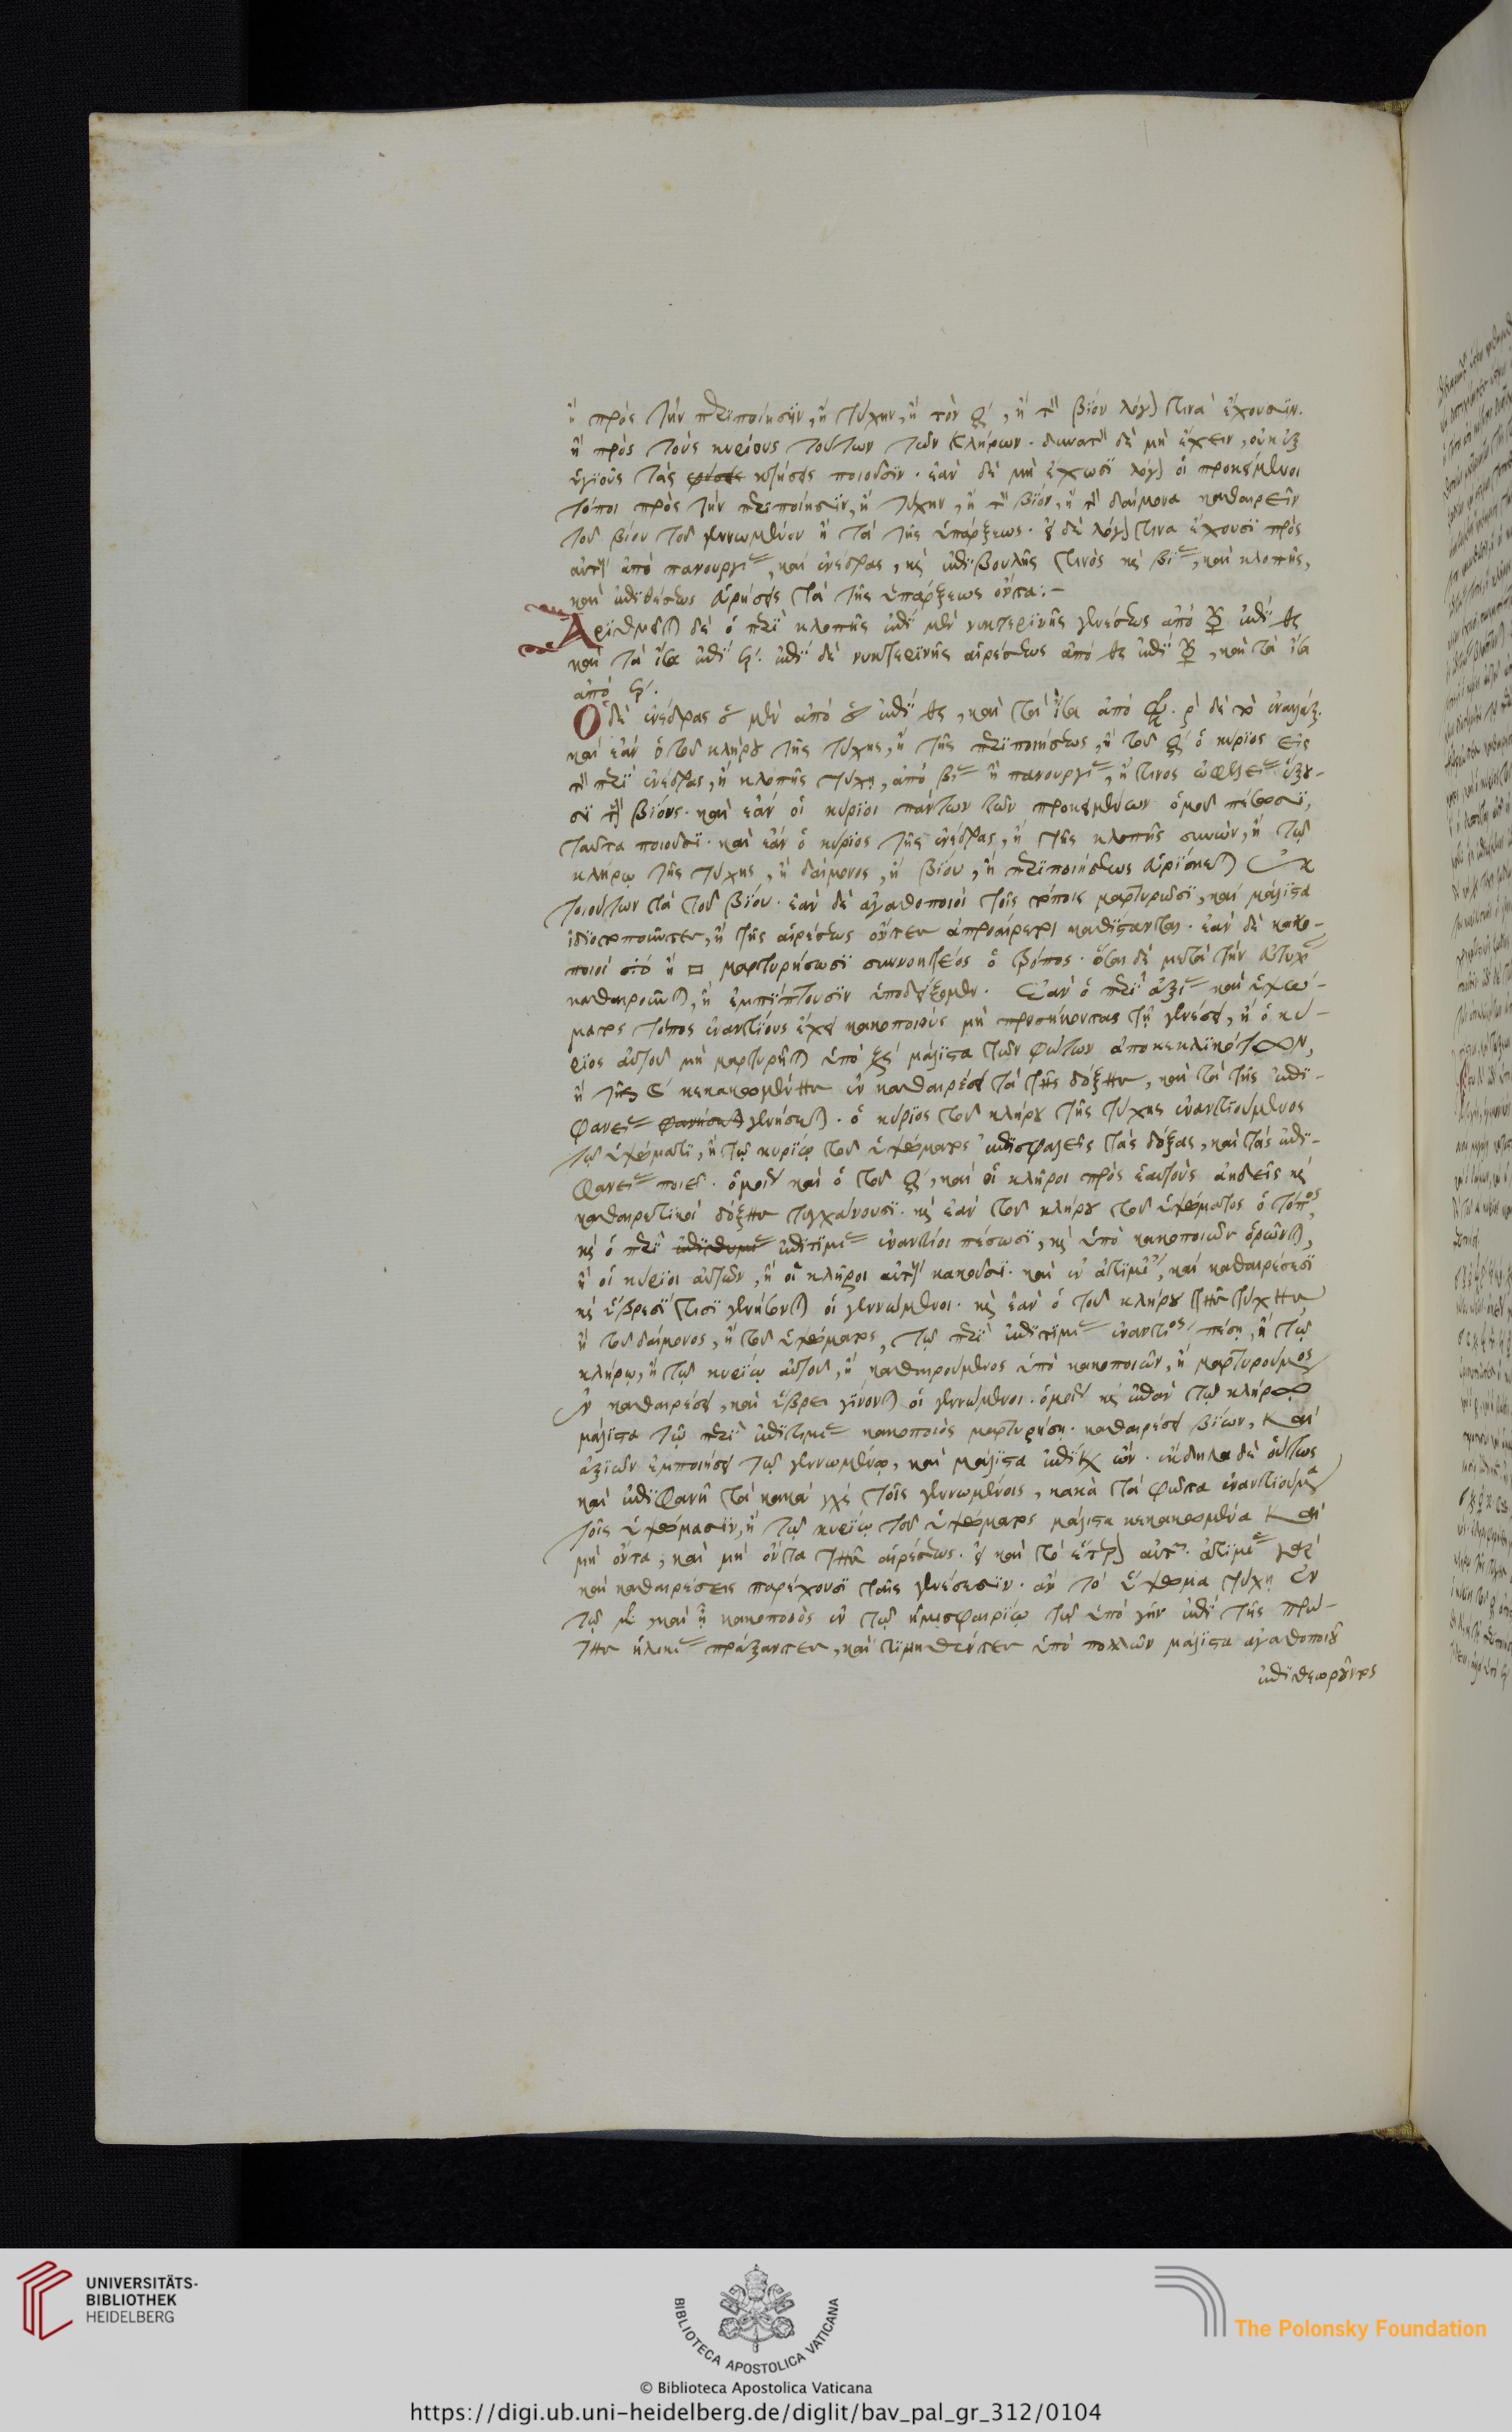 ἢ πρὸς τὴν περιποίησιν, ἢ τύχην, ἢ τὸν, ἢ τὸν βίον λόγον τινὰ ἔχουσιν.
ἢ πρὸς τοὺς κυρίους τούτων τῶν κλήρων. δὲ μὴ ἔχειν, οὐκ
ὑγιοῦς τὰς κτήσεις ποιοῦσιν. ἐὰν δὲ μὴ ἔχωσι λόγον οἱ προκείμενοι
τόποι πρὸς τὴν περιποίησιν, ἢ τύχην, ἢ τὸν βίον, ἢ τὸν δαίμονα καθαιρεῖν
τοῦ βίου τοῦ γεννωμένου ἢ τὰ τῆς ὑπάρξεως. εἰ δὲ λόγον τινα ἔχουσι πρὸς
αὐτοὺς ἀπὸ πανουργίας, καὶ ἐνέδρας, καὶ ἐπιβουλῆς τινὸς καὶ βίας, καὶ κλοπῆς,
καὶ ἐπιθέσεως εὑρήσεις τὰ τῆς ὑπάρξεως ὄντα:-
Ἀριθμεῖται δὲ ὁ περὶ κλοπῆς ἐπὶ μὲν νυκτερινῆς γενέσεως ἀπὸ ☿ ἐπὶ ♂
καὶ τὰ ἴσα ἐπὶ. ἐπὶ δὲ νυκτερινῆς αἱρέσεως ἀπὸ ♂ ἐπὶ ☿, καὶ τὰ ἴσα
ἀπὸ
Ὁ δὲ ἐνέδρας μὲν ἀπὸ ἐπὶ ♂, καὶ τὰ ἴσα ἀπὸ. δὲ τὸ ἐναλλάξ.
καὶ ἐὰν ὁ τοῦ κλήρου τῆς τύχης, ἢ τῆς περιποιήσεως, ἢ τοῦ ὁ κύριος εἰς
τὸν περὶ ἐνέδρας, ἢ κλοπῆς τύχῃ, ἀπὸ βίας ἢ πανουργίας, ἤ τινος ὠφελείας ἕξου-
σι τοὺς βίους. καὶ ἐὰν οἱ κύριοι πάντων τῶν προκειμένων ὁμοῦ πέσωσι,
ταῦτα ποιοῦσι. καὶ ἐὰν ὁ κύριος τῆς ἐνέδρας, ἢ τῆς κλοπῆς συνὼν, ἢ τῷ
κλήρῳ τῆς τύχης, ἢ δαίμονος, ἢ βίου, ἢ περιποιήσεως εὑρίσκεται ἐκ
τοιούτων τὰ τοῦ βίου. ἐὰν δὲ ἀγαθοποιοὶ τοῖς τόποις μαρτυρῶσι, καὶ μάλιστα
ἰδιοτοποῦντες, ἢ τῆς αἱρέσεως ὄντες ἀπροαίρετοι καθίστανται. ἐὰν δὲ κακο-
ποιοὶ ἢ □ μαρτυρήσωσι συννοητέος ὁ τρόπος. ὅτι δὲ μετὰ τὴν εὐτυχίαν
καθαιροῦνται, ἢ ἐμπίπτουσιν ὑποδείξομεν. Ἐὰν ὁ περὶ ἀξίας καὶ ὑψώ-
ματος τόπος ἐναντίους ἔχει κακοποιοὺς μὴ προσήκοντας τῇ γενέσει, ἢ ὁ κύ-
ριος αὐτοῦ μὴ μαρτυρῆται ὑπὸ μάλιστα τῶν φώτων ἀποκεκλικότων,
ἢ τῆς κεκακωμένης ἐν καθαιρέσει τὰ τῆς δόξης, καὶ τὰ τῆς ἐπι-
φανείας γενήσεται. ὁ κύριος τοῦ κλήρου τῆς τύχης ἐναντιούμενος
τῷ ὑψώματι, ἢ τῷ κυρίῳ τοῦ ὑψώματος ἐπισφαλεῖς τὰς δόξας, καὶ τὰς ἐπι-
φανείας ποιεῖ. ὁμοίως καὶ ὁ τοῦ, καὶ οἱ κλῆροι πρὸς ἑαυτοὺς ἀηδεῖς καὶ
καθαιρετικοὶ δόξης τυγχάνουσι. καὶ ἐὰν τοῦ κλήρου τοῦ ὑψώματος ὁ τόπος,
καὶ ὁ περὶ ἐπιθυμίας ἐπιτιμίας ἐναντίοι πέσωσι, καὶ ὑπὸ κακοποιῶν ὁρῶνται,
ἢ οἱ κύριοι αὐτῶν, ἢ οἱ κλῆροι αὐτοὺς κακοῦσι. καὶ ἐν ἀτιμίαις, καὶ καθαιρέσεσι
καὶ ὕβρεσί τισι γενήσονται οἱ γεννώμενοι. καὶ ἐὰν ὁ τοῦ κλήρου τῆς τύχης
ἢ τοῦ δαίμονος, ἢ τοῦ ὑψώματος, τῷ περὶ ἐπιτιμίας ἐναντίος πέσῃ, ἢ τῷ
κλήρῳ, ἢ τῷ κυρίῳ αὐτοῦ, ἢ καθαιρούμενος ὑπὸ κακοποιῶν, ἢ μαρτυρούμενος
ἐν καθαιρέσει, καὶ ὕβρει γίνονται οἱ γεννώμενοι. ὁμοίως καὶ ἐπὰν τῷ κλήρῳ
μάλιστα τῷ περὶ ἐπιτιμίας κακοποιὸς μαρτυρήσῃ. καθαιρέσει βίων, καὶ
ἀξιῶν ἐμποιήσει τῷ γεννωμένῳ, καὶ μάλιστα ὤν. ἔκδηλα δὲ οὕτως
καὶ ἐπιφανῆ τὰ κακὰ τοῖς γεννωμένοις, κακὰ τὰ φῶτα ἐναντιούμενα
τοῖς ὑψώμασιν, ἢ τῷ κυρίῳ τοῦ ὑψώματος μάλιστα κεκακωμένα καὶ
μὴ ὄντα, καὶ μὴ ὄντα τῆς αἱρέσεως. εἰ καὶ τὸ ἕτερον αὐτῶν. ἀτιμίας
καὶ καθαιρέσεις παρέχουσι ταῖς γενέσεσιν. ἂν τὸ ὕψωμα τύχῃ ἐν
τῷ καὶ ᾖ κακοποιὸς ἐν τῷ ἡμισφαιρίῳ τῷ ὑπὸ γῆν ἐπὶ τῆς πρώ-
της ἡλικίας πράξαντες, καὶ τιμηθέντες ὑπὸ πολλῶν μάλιστα ἀγαθοποιοῦ
ἐπιθεωροῦντος
UNIVERSITÄTS-
BIBLIOTHEK
HEIDELBERG
BIBLIOTECA APOSTOLICA VATICANA
The Polonsky Foundation
© Biblioteca Apostolica Vaticana
https://digi.ub.uni-heidelberg.de/diglit/bav_pal_gr_312/0104